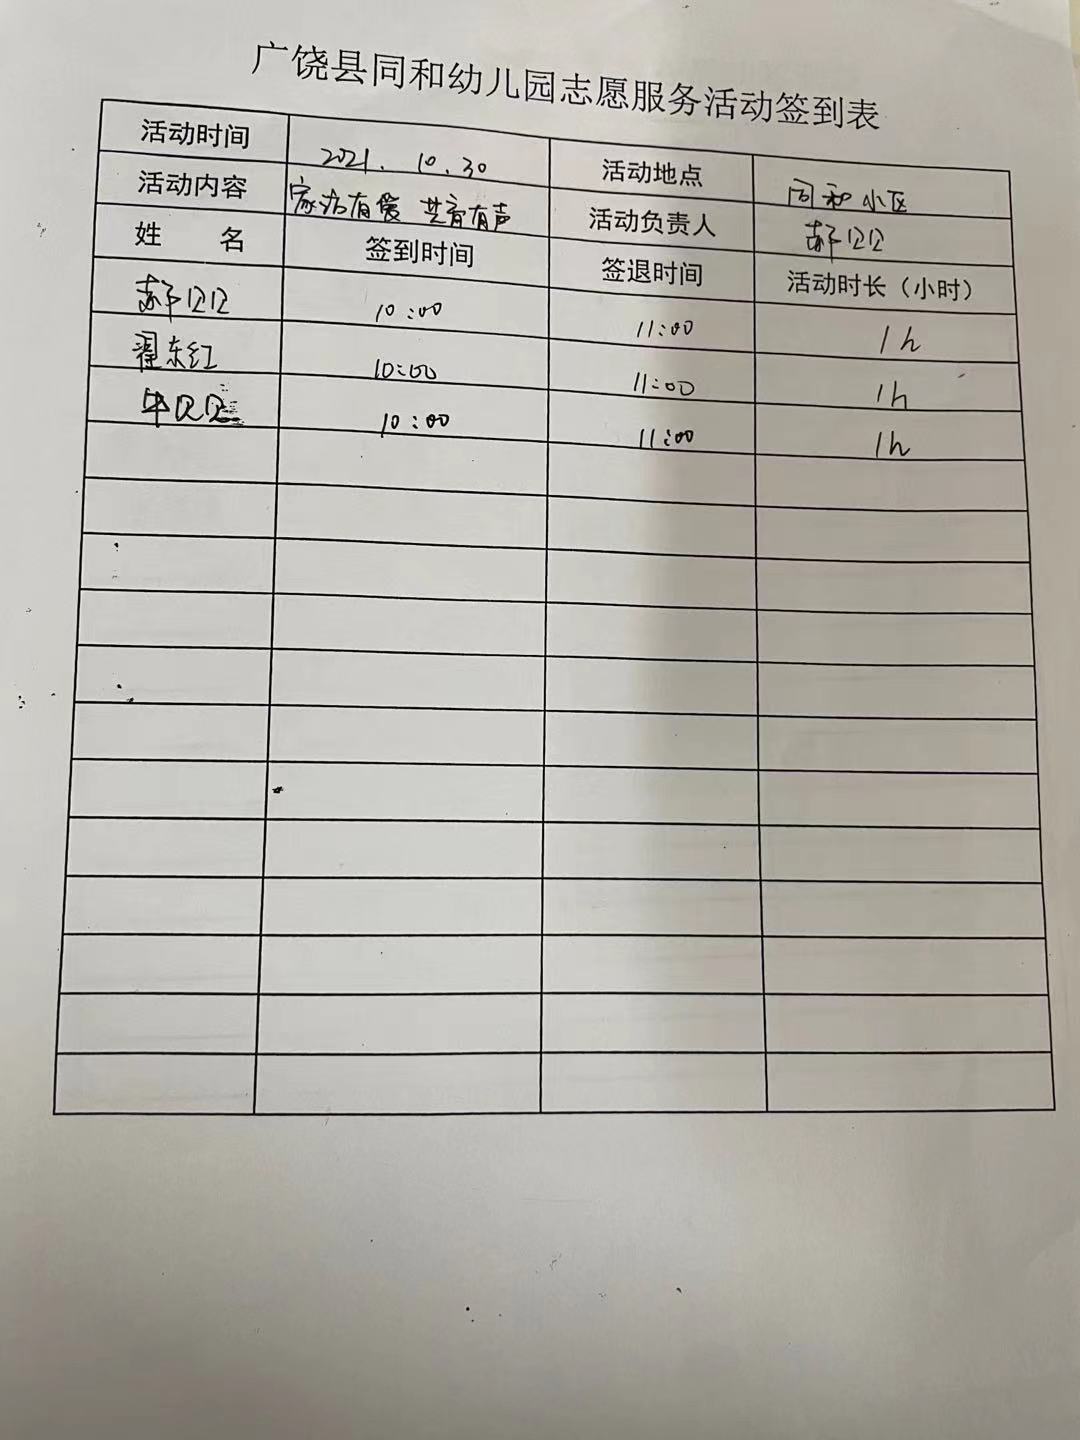 广饶县同和幼儿园志愿服务活动签到表
活动时间 2021.10.30 活动地点 同和小区
活动内容 家访有爱 共育有声 活动负责人 郝贝贝
姓 名 签到时间 签退时间 活动时长（小时）
郝贝贝 10:00 11:00 1h
翟东红 10:00 11:00 1h
牛贝贝 10:00 11:00 1h